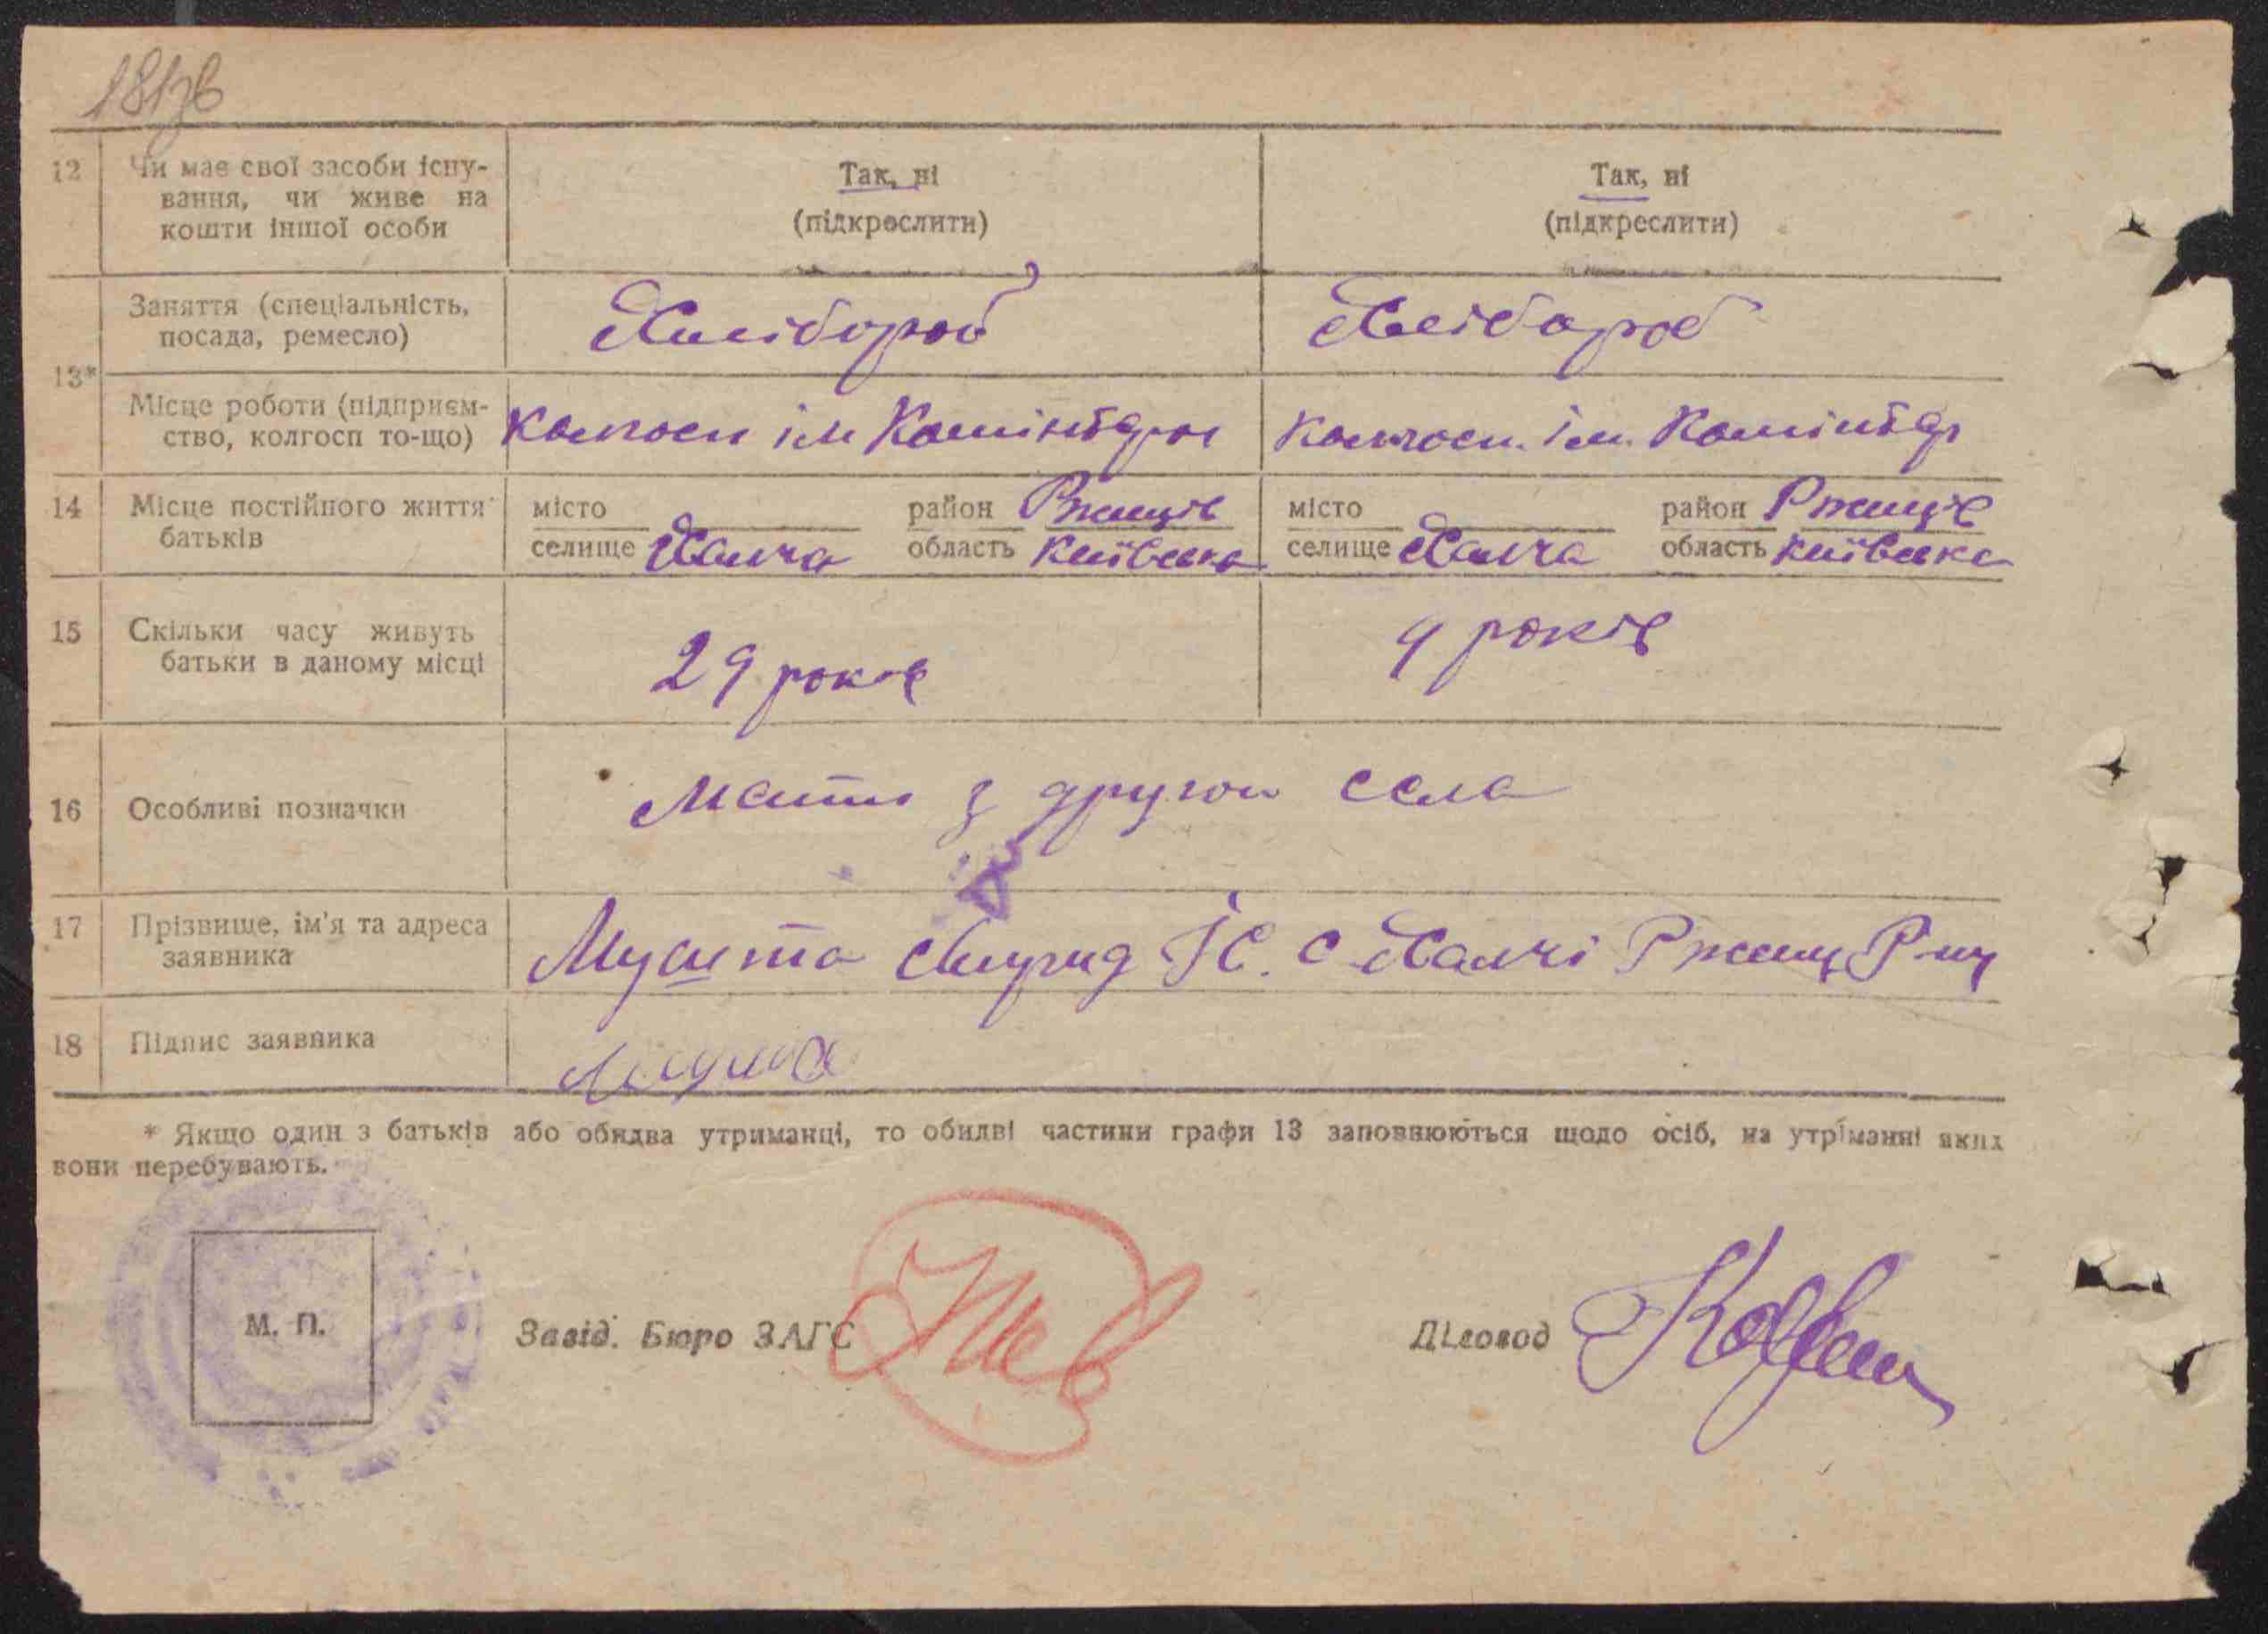 181зв
12 Чи має свої засоби існу-
вання, чи живе на
кошти іншої особи
Так, ні
(підкреслити)
Так, ні
(підкреслити)
13*
Заняття (спеціальність,
посада, ремесло)
Хлібороб
Хлібороб
Місце роботи (підприєм-
ство, колгосп то-що)
Колгосп ім Комінтерн
Колгосп. ім. Комінтер
14 Місце постійного життя
батьків
місто район Ржищів
селище Халча область Київська
місто район Ржищів
селище Халча область Київська
15 Скільки часу живуть
батьки в даному місці
29 років
9 років
16 Особливі позначки
Мати з другого села
17 Прізвище, ім'я та адреса
заявника
С. Халчі Ржищ Р-ну
18 Підпис заявника
* Якщо один з батьків або обидва утриманці, то обидві частини графи 13 заповнюються щодо осіб, на утріманні яких
вони перебувають.
М. П.
Завід. Бюро ЗАГС
Діловод